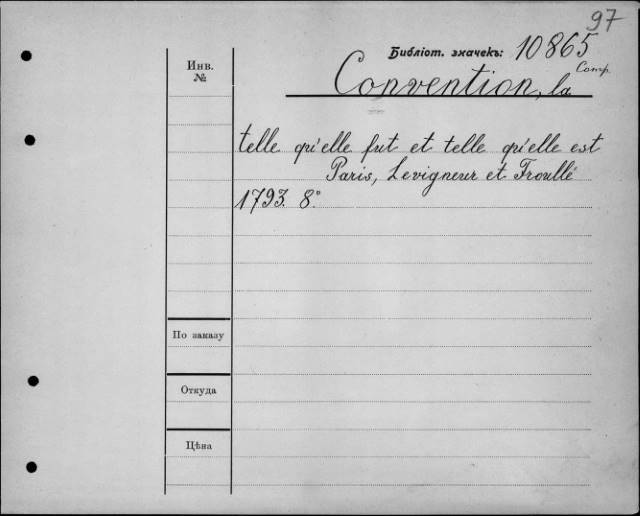 97
Библіот. значекъ: 10865
Comp.
Инв.
№
Convention, la
telle qu'elle fut et telle qu'elle est
Paris, Levigneur et Froullé
1793. 8°
По заказу
Откуда
Цѣна